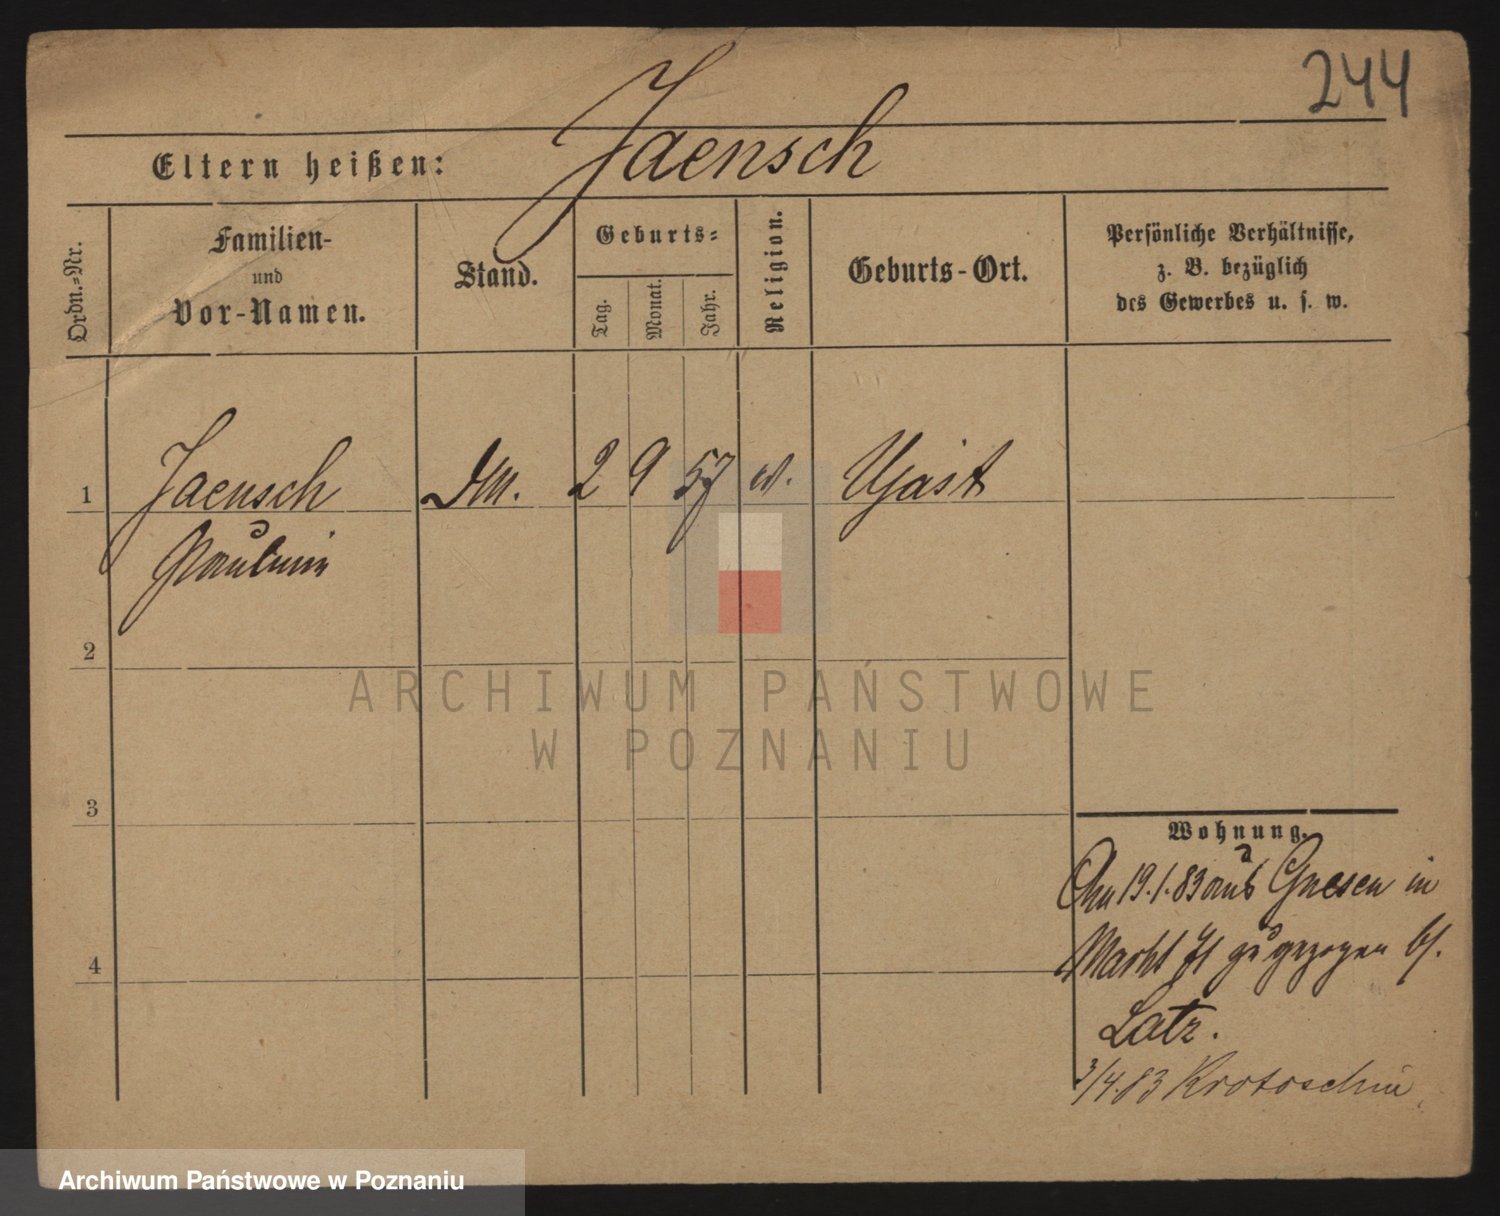 244
Jaensch
Eltern heißen:
Ordn.-Nr.
Familien-
und
Vor-Namen.
Stand.
Geburts-
Tag.
Monat.
Jahr.
Religion.
Geburts-Ort.
Persönliche Verhältnisse,
z. B. bezüglich
des Gewerbes u. s. w.
1 Jaensch 2 9 57 Ujast
Paulina
2
3
4
Wohnung.
Am 19.1.83 aus Gnesen in
Markt 71 zugezogen bf.
Latz.
3/4.83 Krotoschin
ARCHIWUM PAŃSTWOWE
W POZNANIU
Archiwum Państwowe w Poznaniu